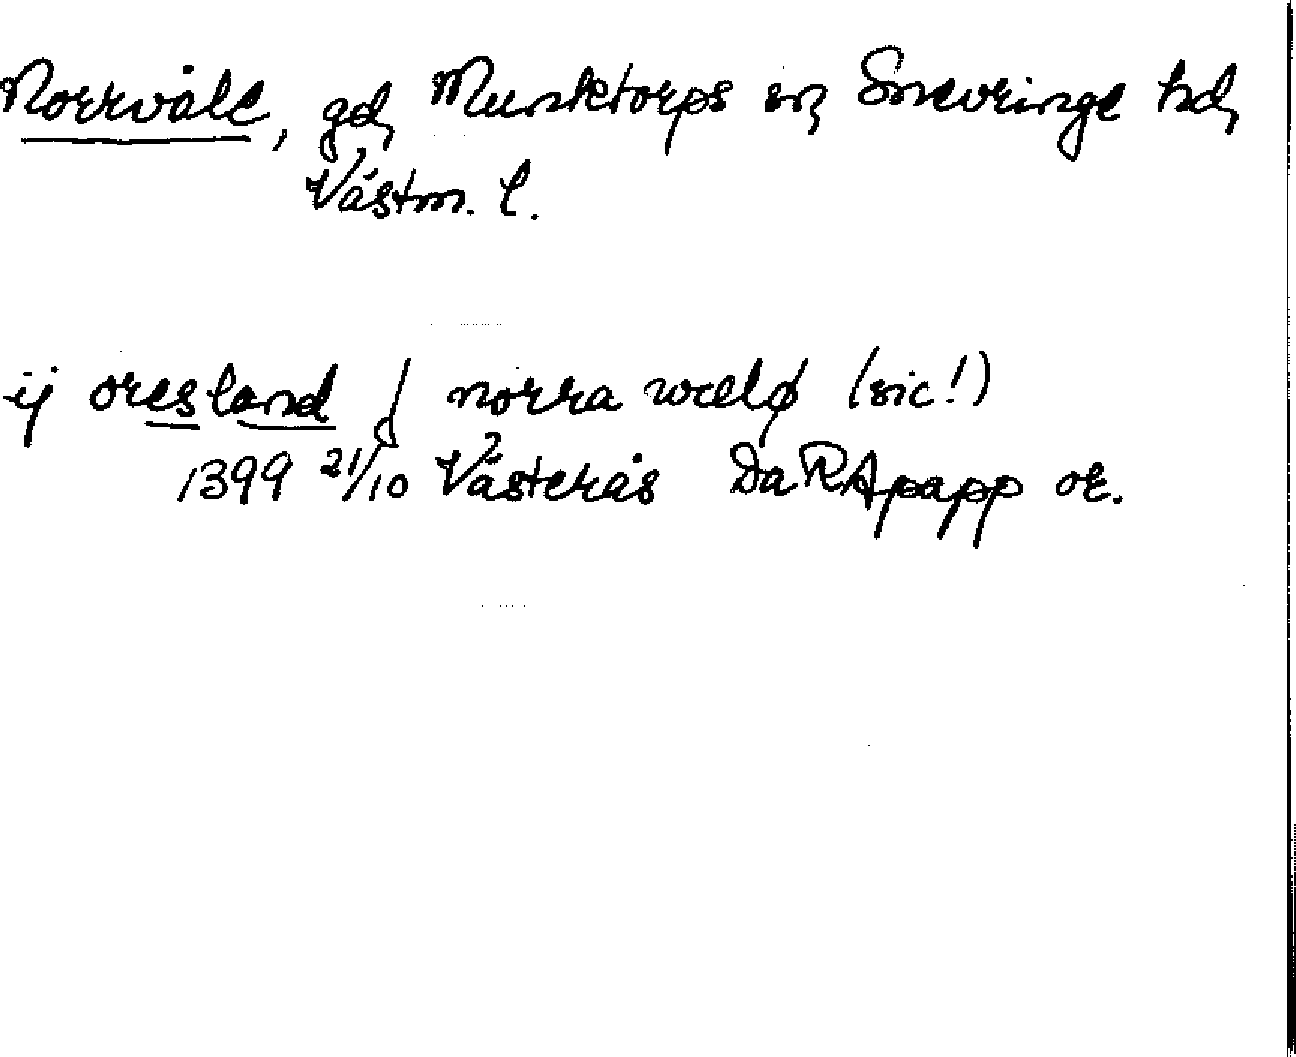 Norrvåle, gd, Munktorps sn, Snevringe hd,
Västm. l.
ij oresland j norra wælø (sic!)
1399 21/10 Västerås Da RApapp or.